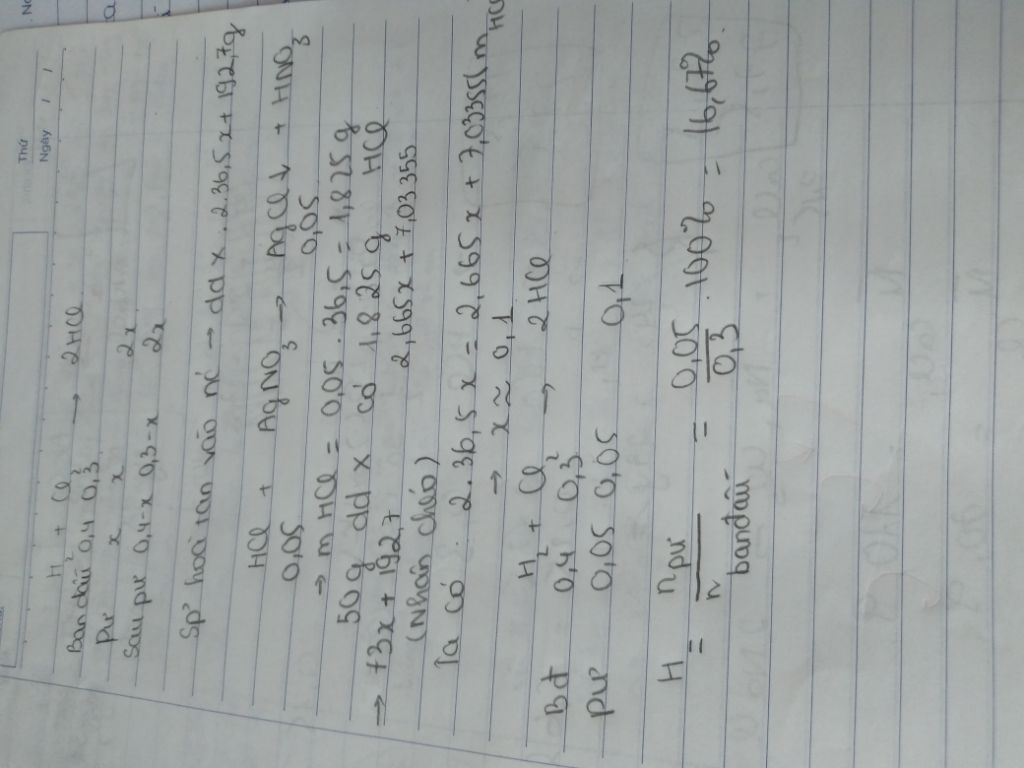 Thứ
Ngày / /
H2 + Cl2 → 2HCl
Ban đầu 0,4 0,3
Pư x x 2x
Sau pư 0,4-x 0,3-x 2x
Sp' hoà tan vào nc → dd x . 2.36,5 x + 192,7g
HCl + AgNO3 → AgCl↓ + HNO3
0,05 0,05
→ m HCl = 0,05 . 36,5 = 1,825 g
50 g dd x có 1,825 g HCl
→ 73x + 192,7 2,665x + 7,03355
(Nhân chéo)
Ta có 2.36,5 x = 2,665 x + 7,03355 m HCl
→ x ≈ 0,1
H2 + Cl2 → 2HCl
Bđ 0,4 0,3
pư 0,05 0,05 0,1
H = n pư / n ban đầu = 0,05 / 0,3 . 100% = 16,67%.